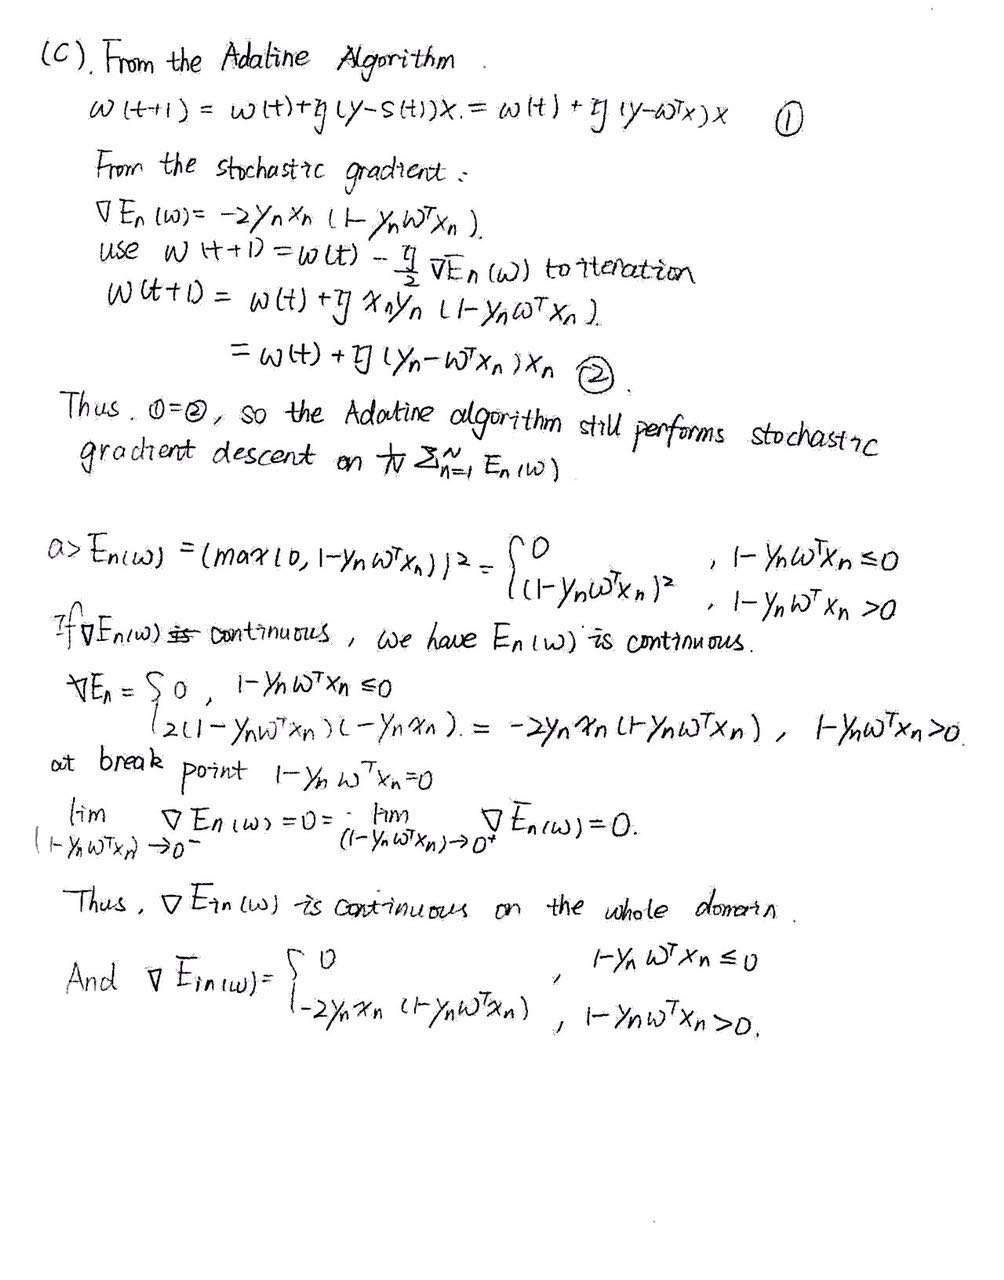 (C). From the Adaline Algorithm.
w(t+1) = w(t)+η(y-s(t))x. = w(t) + η(y-wᵀx)x ①
From the stochastic gradient:
∇Eₙ(w)= -2yₙxₙ(1-yₙwᵀxₙ).
use w(t+1) = w(t) - η/2 ∇Eₙ(w) to iteration
w(t+1) = w(t) + η xₙyₙ (1-yₙwᵀxₙ).
= w(t) + η(yₙ-wᵀxₙ)xₙ ②.
Thus. ①=②, so the Adaline algorithm still performs stochastic
gradient descent on 1/N Σₙ₌₁ᴺ Eₙ(w)
a> Eₙ(w) = (max(0, 1-yₙwᵀxₙ))² = { 0 , 1-yₙwᵀxₙ ≤0
(1-yₙwᵀxₙ)² , 1-yₙwᵀxₙ >0
If ∇Eₙ(w) is continuous, we have Eₙ(w) is continuous.
∇Eₙ = { 0, 1-yₙwᵀxₙ ≤0
2(1-yₙwᵀxₙ)(-yₙxₙ). = -2yₙxₙ(1-yₙwᵀxₙ), 1-yₙwᵀxₙ>0.
at break point 1-yₙwᵀxₙ=0
lim ∇Eₙ(w) = 0 = lim ∇Eₙ(w)=0.
(1-yₙwᵀxₙ)→0⁻ (1-yₙwᵀxₙ)→0⁺
Thus, ∇Ein(w) is continuous on the whole domain.
And ∇Ein(w)= { 0 , 1-yₙwᵀxₙ ≤0
-2yₙxₙ (1-yₙwᵀxₙ) , 1-yₙwᵀxₙ >0.